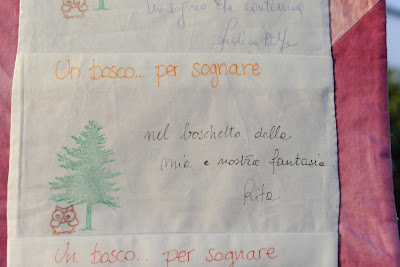 un sogno che continua
Un bosco... per sognare
nel boschetto della
mia e nostra fantasia...
Rita
Un bosco... per sognare